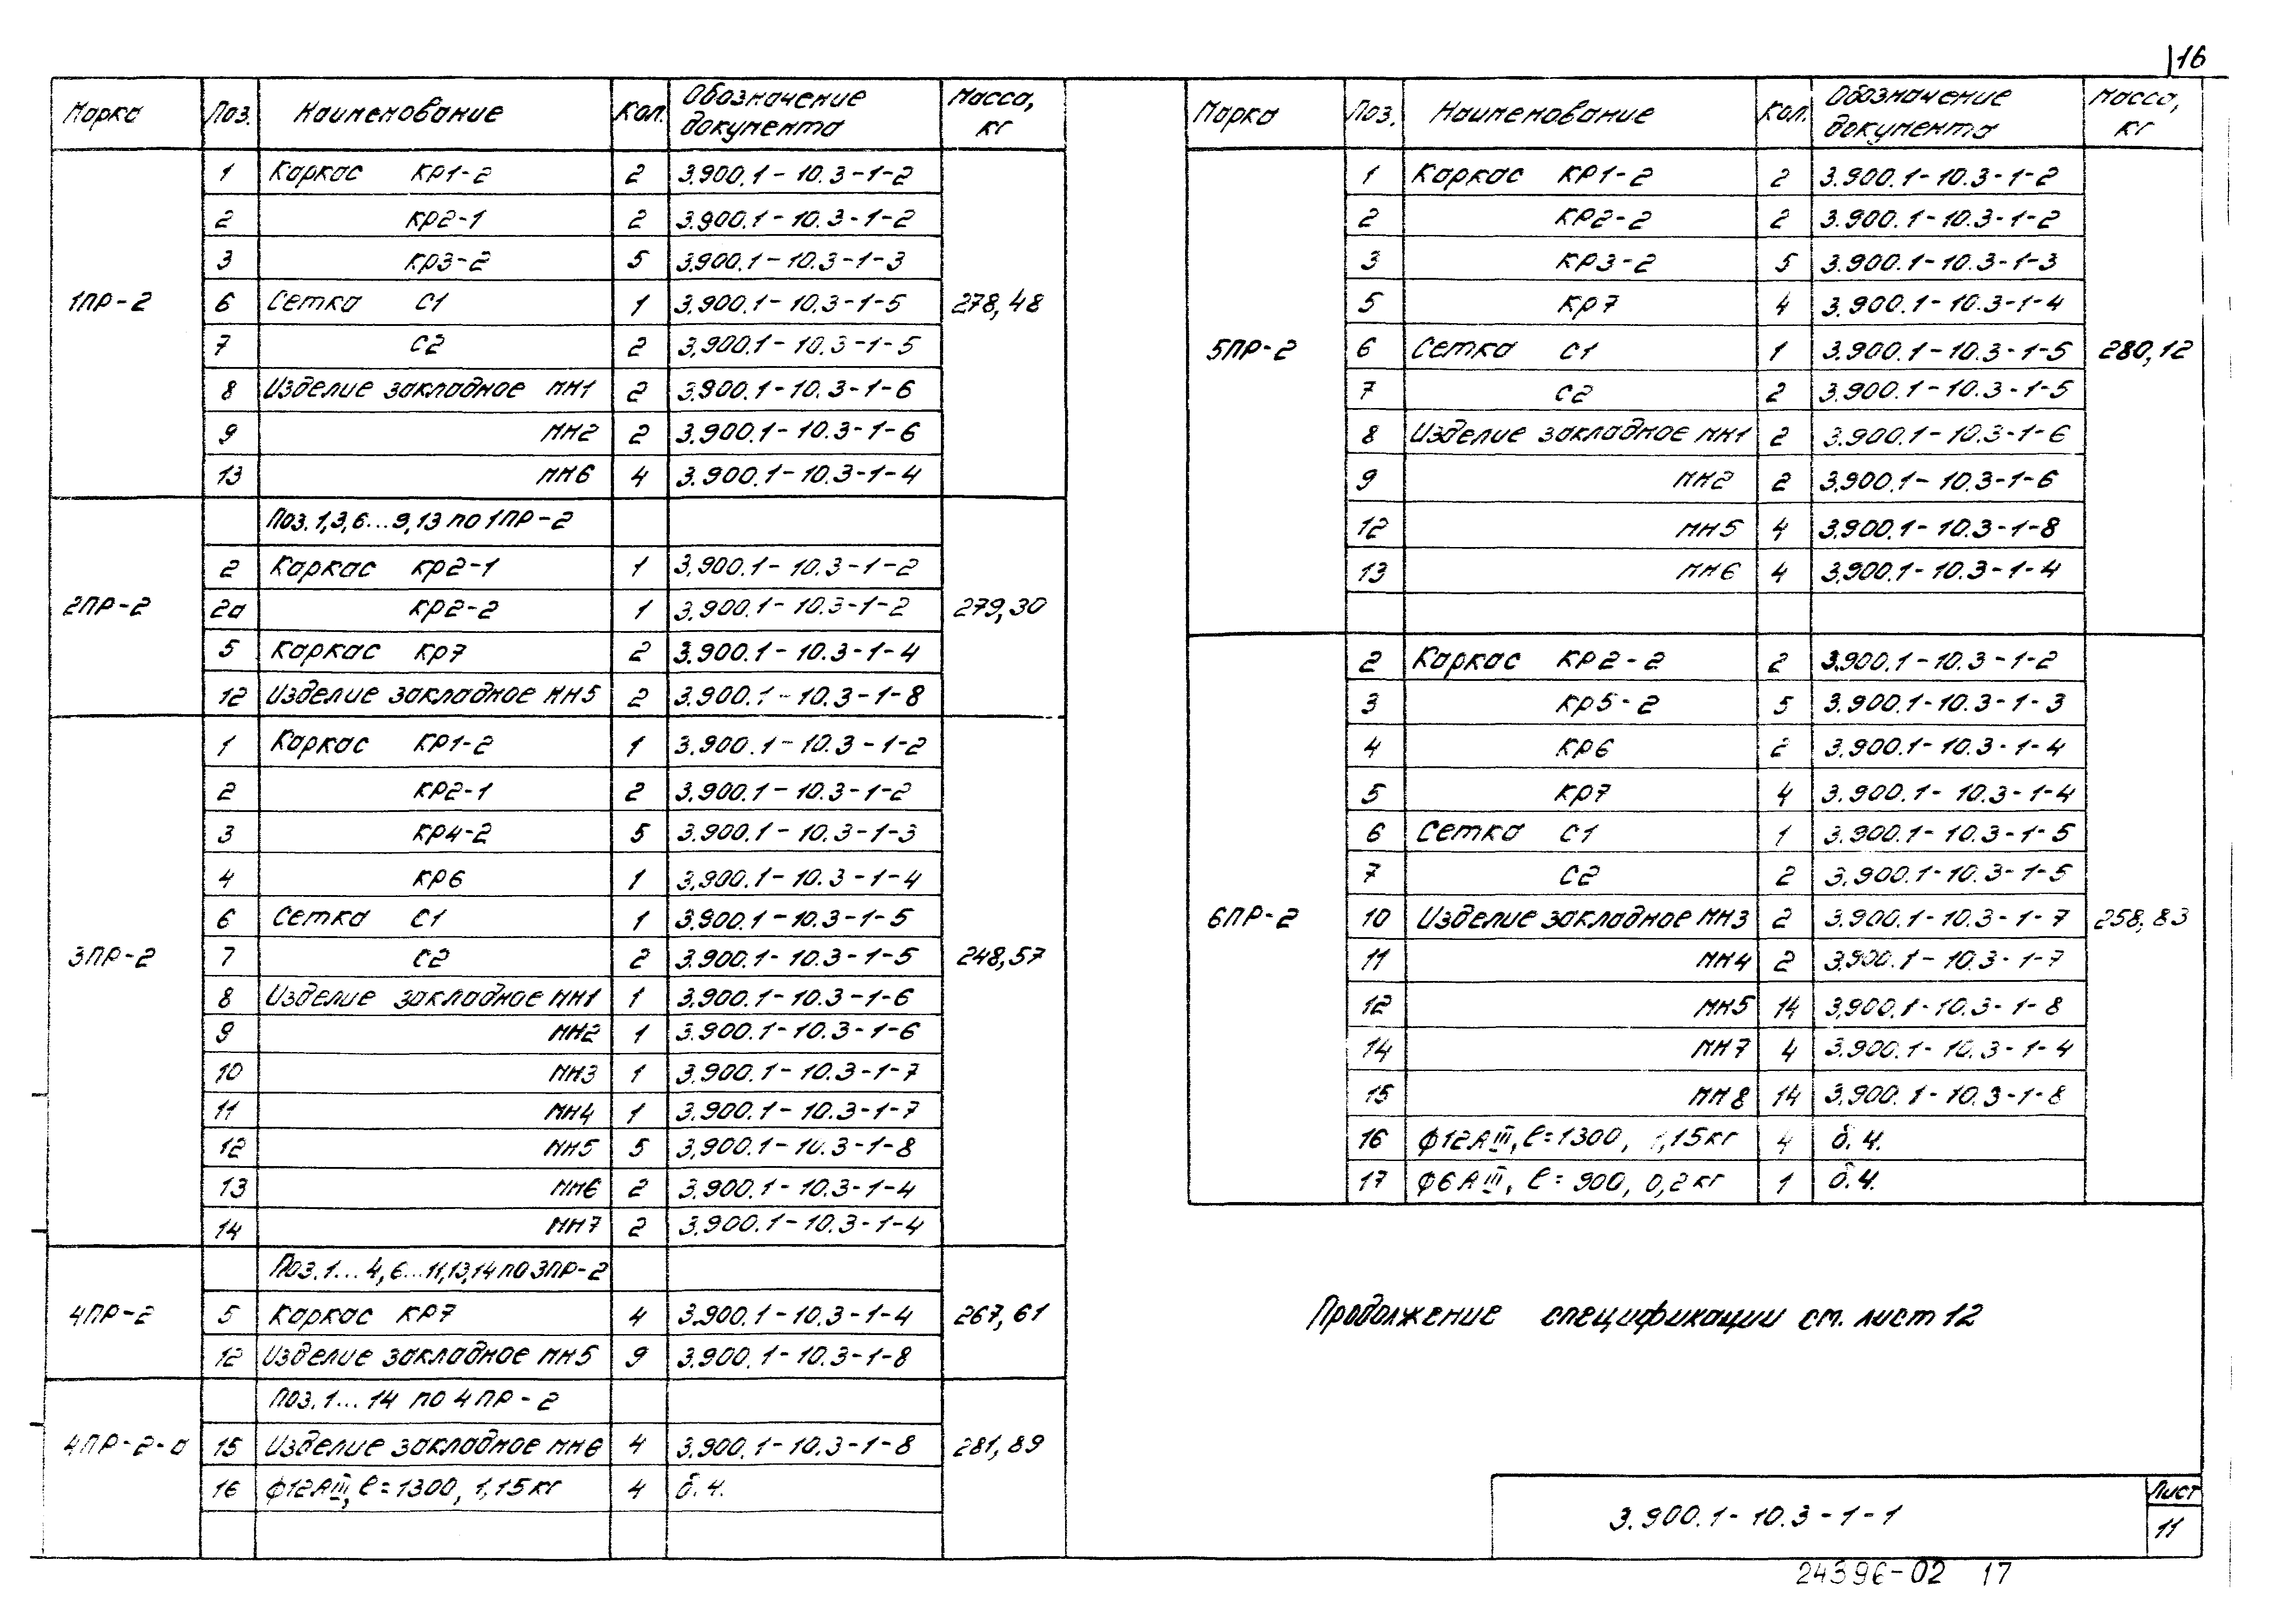 16
Марка Поз. Наименование Кол. Обозначение документа Масса, кг
1ПР-2 278,48
1 Каркас КР1-2 2 3.900.1-10.3-1-2
2 КР2-1 2 3.900.1-10.3-1-2
3 КР3-2 5 3.900.1-10.3-1-3
6 Сетка С1 1 3.900.1-10.3-1-5
7 С2 2 3.900.1-10.3-1-5
8 Изделие закладное МН1 2 3.900.1-10.3-1-6
9 МН2 2 3.900.1-10.3-1-6
13 МН6 4 3.900.1-10.3-1-4
2ПР-2 279,30
Поз. 1,3,6...9,13 по 1ПР-2
2 Каркас КР2-1 1 3.900.1-10.3-1-2
2а КР2-2 1 3.900.1-10.3-1-2
5 Каркас КР7 2 3.900.1-10.3-1-4
12 Изделие закладное МН5 2 3.900.1-10.3-1-8
3ПР-2 248,57
1 Каркас КР1-2 1 3.900.1-10.3-1-2
2 КР2-1 2 3.900.1-10.3-1-2
3 КР4-2 5 3.900.1-10.3-1-3
4 КР6 1 3.900.1-10.3-1-4
6 Сетка С1 1 3.900.1-10.3-1-5
7 С2 2 3.900.1-10.3-1-5
8 Изделие закладное МН1 1 3.900.1-10.3-1-6
9 МН2 1 3.900.1-10.3-1-6
10 МН3 1 3.900.1-10.3-1-7
11 МН4 1 3.900.1-10.3-1-7
12 МН5 5 3.900.1-10.3-1-8
13 МН6 2 3.900.1-10.3-1-4
14 МН7 2 3.900.1-10.3-1-4
4ПР-2 267,61
Поз. 1...4, 6...11,13,14 по 3ПР-2
5 Каркас КР7 4 3.900.1-10.3-1-4
12 Изделие закладное МН5 9 3.900.1-10.3-1-8
4ПР-2-а 281,89
Поз. 1...14 по 4ПР-2
15 Изделие закладное МН8 4 3.900.1-10.3-1-8
16 ф12АIII, ℓ=1300, 1,15кг 4 б.ч.
Марка Поз. Наименование Кол. Обозначение документа Масса, кг
5ПР-2 280,12
1 Каркас КР1-2 2 3.900.1-10.3-1-2
2 КР2-2 2 3.900.1-10.3-1-2
3 КР3-2 5 3.900.1-10.3-1-3
5 КР7 4 3.900.1-10.3-1-4
6 Сетка С1 1 3.900.1-10.3-1-5
7 С2 2 3.900.1-10.3-1-5
8 Изделие закладное МН1 2 3.900.1-10.3-1-6
9 МН2 2 3.900.1-10.3-1-6
12 МН5 4 3.900.1-10.3-1-8
13 МН6 4 3.900.1-10.3-1-4
6ПР-2 258,83
2 Каркас КР2-2 2 3.900.1-10.3-1-2
3 КР5-2 5 3.900.1-10.3-1-3
4 КР6 2 3.900.1-10.3-1-4
5 КР7 4 3.900.1-10.3-1-4
6 Сетка С1 1 3.900.1-10.3-1-5
7 С2 2 3.900.1-10.3-1-5
10 Изделие закладное МН3 2 3.900.1-10.3-1-7
11 МН4 2 3.900.1-10.3-1-7
12 МН5 14 3.900.1-10.3-1-8
14 МН7 4 3.900.1-10.3-1-4
15 МН8 14 3.900.1-10.3-1-8
16 ф12АIII, ℓ=1300, 1,15кг 4 б.ч.
17 ф6АIII, ℓ=900, 0,2кг 1 б.ч.
Продолжение спецификации см. лист 12
3.900.1-10.3-1-1
Лист
11
24396-02 17